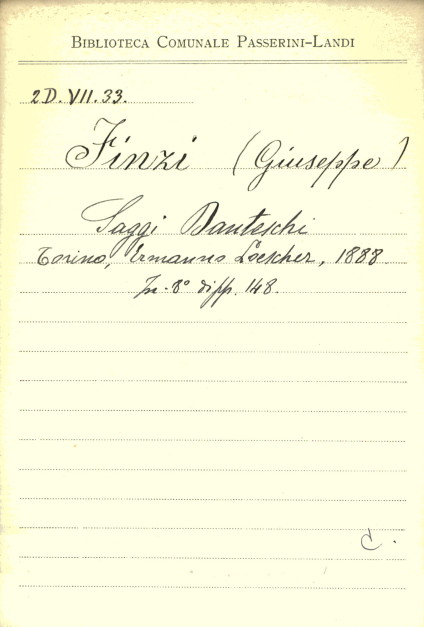 BIBLIOTECA COMUNALE PASSERINI-LANDI
2D. VII. 33.
Finzi (Giuseppe)
Saggi Danteschi
Torino, Ermanno Loescher, 1888.
In-8° di pp. 148.
C.